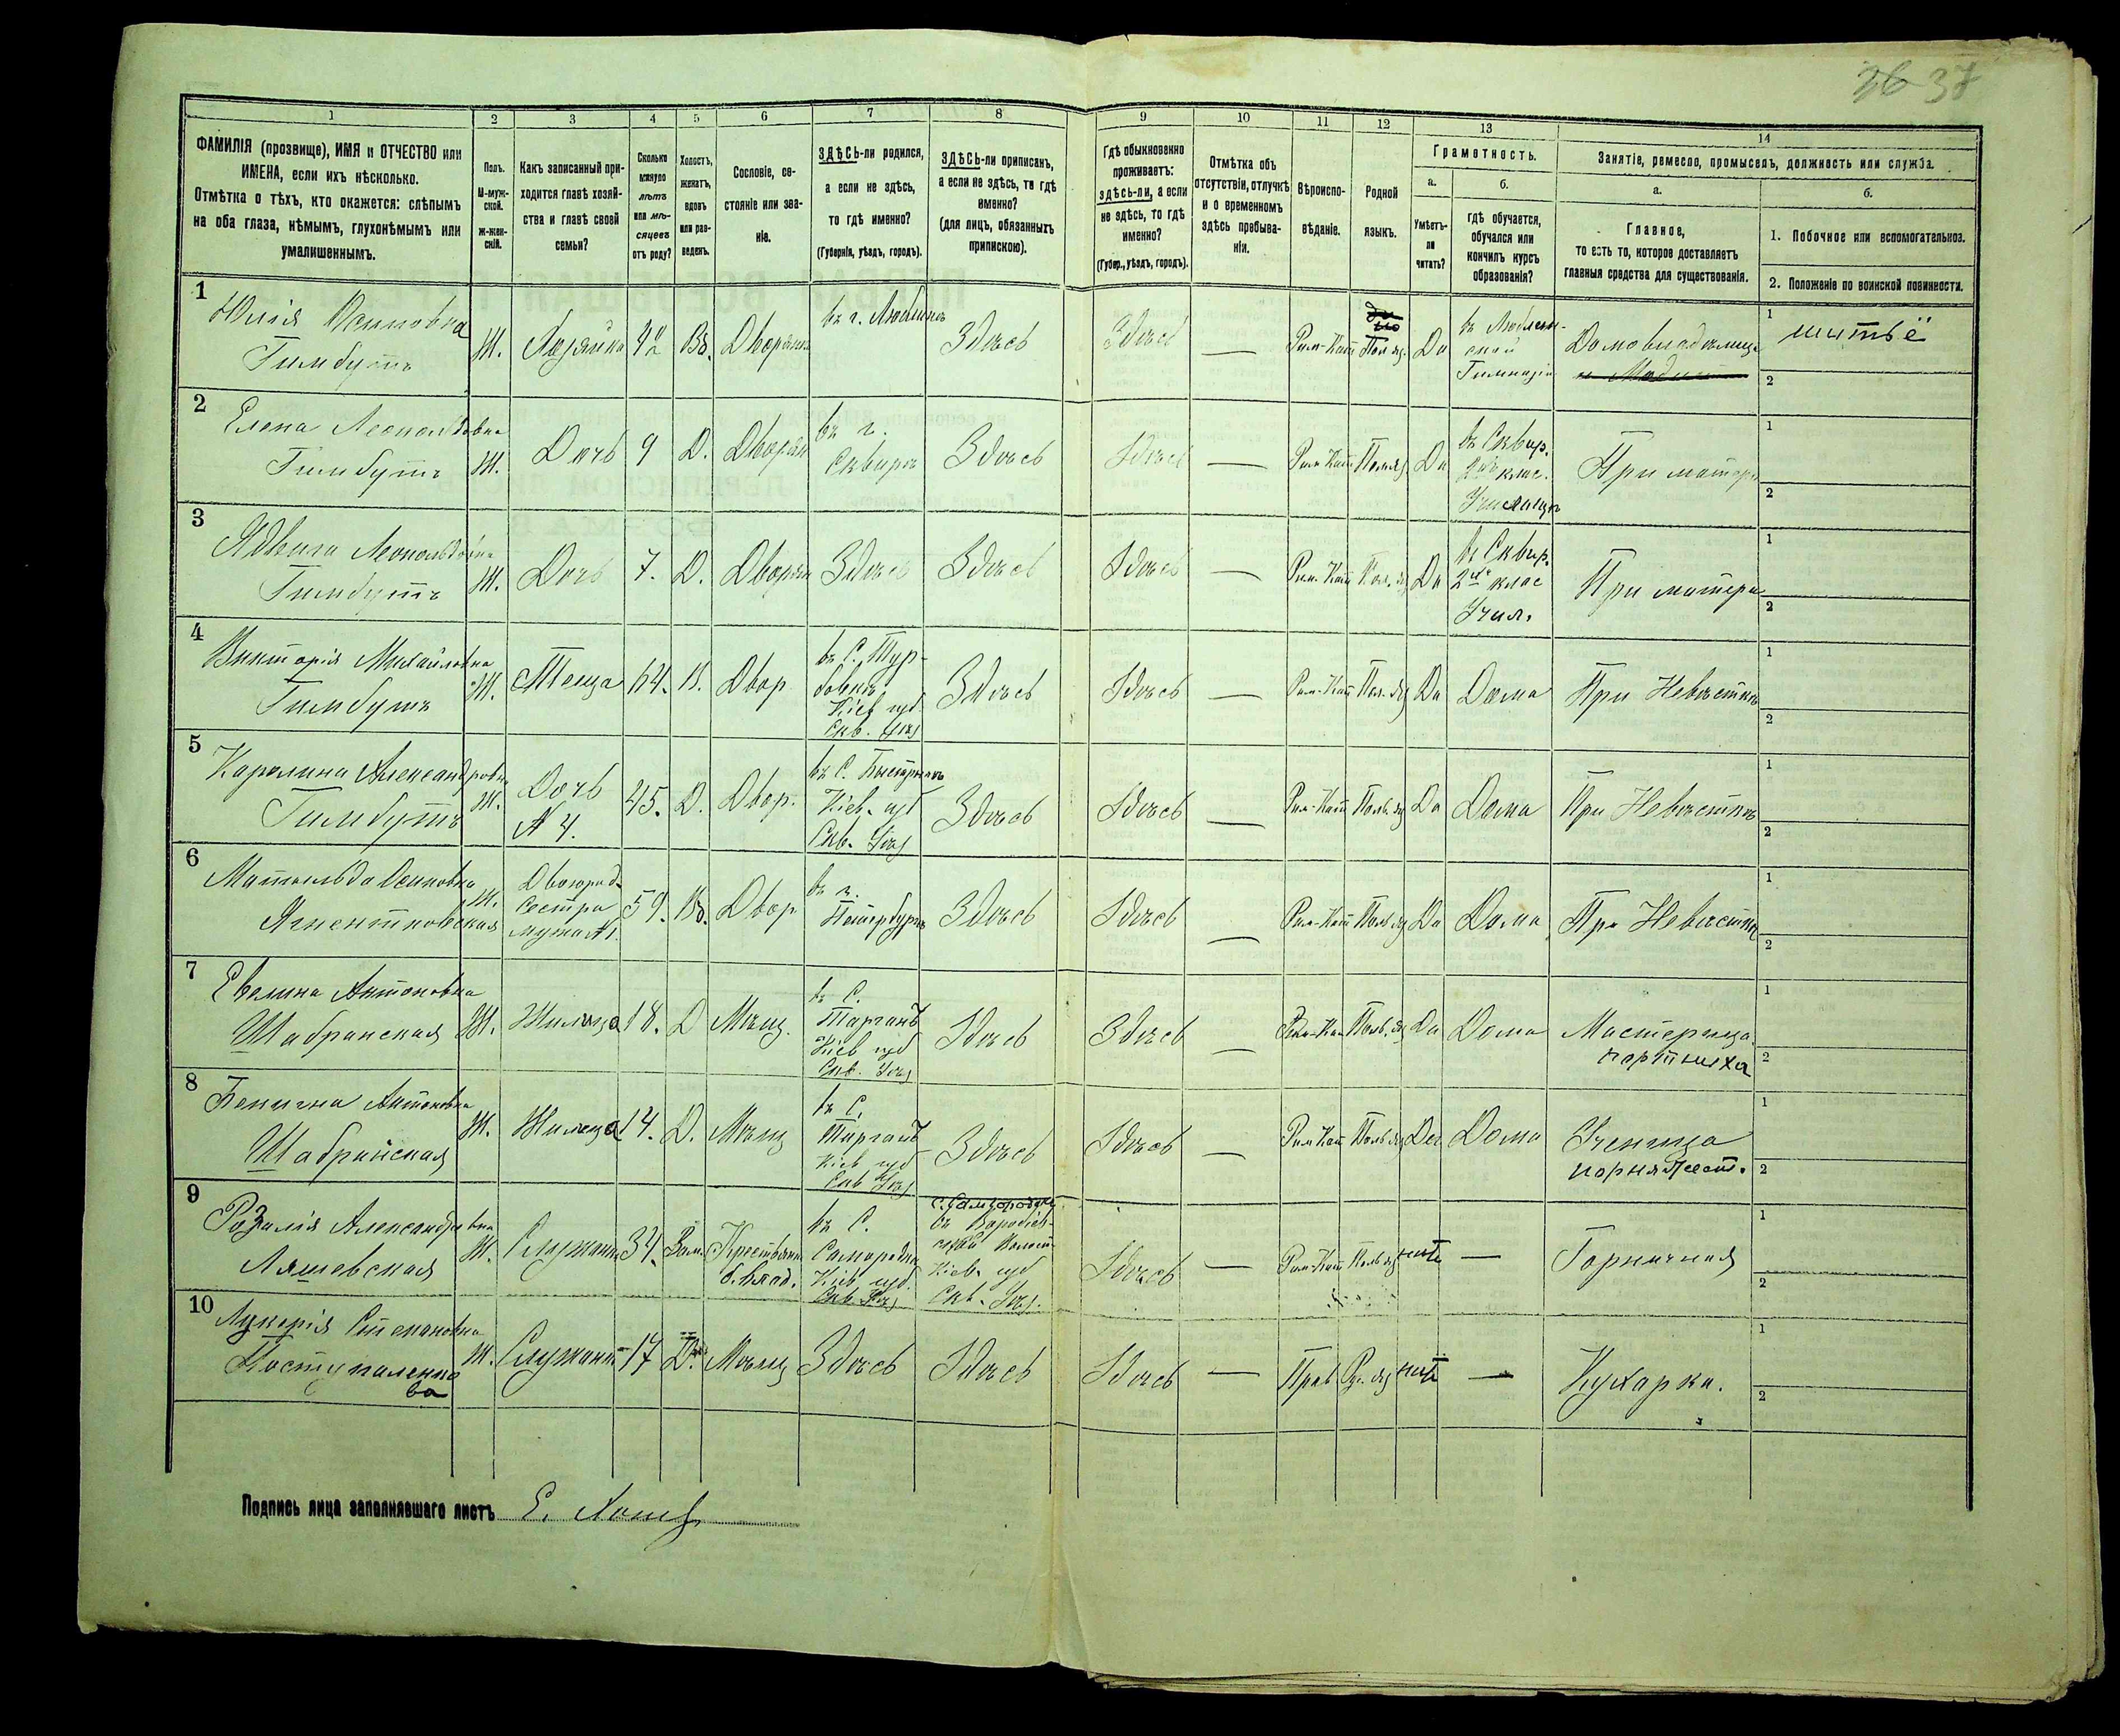 36 37
1 2 3 4 5 6 7 8 9 10 11 12 13 14
ФАМИЛІЯ (прозвище), ИМЯ и ОТЧЕСТВО или
ИМЕНА, если ихъ нѣсколько.
Отмѣтка о тѣхъ, кто окажется: слѣпымъ
на оба глаза, нѣмымъ, глухонѣмымъ или
умалишеннымъ.
Полъ.
М-муж-
ской.
Ж-жен-
скій.
Какъ записанный при-
ходится главѣ хозяй-
ства и главѣ своей
семьи?
Сколько
минуло
лѣтъ
или мѣ-
сяцевъ
отъ роду?
Холостъ,
женатъ,
вдовъ
или раз-
веденъ.
Сословіе, со-
стояніе или зва-
ніе.
ЗДѢСЬ-ли родился,
а если не здѣсь,
то гдѣ именно?
(Губернія, уѣздъ, городъ).
ЗДѢСЬ-ли приписанъ,
а если не здѣсь, то гдѣ
именно?
(для лицъ, обязанныхъ
припискою).
Гдѣ обыкновенно
проживаетъ:
здѣсь-ли, а если
не здѣсь, то гдѣ
именно?
(Губер., уѣздъ, городъ).
Отмѣтка объ
отсутствіи, отлучкѣ
и о временномъ
здѣсь пребыва-
ніи.
Вѣроиспо-
вѣданіе.
Родной
языкъ.
Грамотность.
а.
Умѣетъ-
ли
читать?
б.
гдѣ обучается,
обучался или
кончилъ курсъ
образованія?
Занятіе, ремесло, промыселъ, должность или служба.
а.
Главное,
то есть то, которое доставляетъ
главныя средства для существованія.
б.
1. Побочное или вспомогательное.
2. Положеніе по воинской повинности.
1
Юлія Осиповна
Гимбутъ
Ж. Хозяйка 42 Вд. Дворянка
въ г. Люблинѣ
Здѣсь Здѣсь — Рим-Кат Пол яз. Да
въ Люблин-
ской
Гимназіи
Домовладѣлица
1 шитьё
2
2
Елена Леопольдовна
Гимбутъ
Ж. Дочь 9 Д. Дворян
въ г.
Сквирѣ
Здѣсь Здѣсь — Рим Кат Пол яз Да
въ Сквир.
2хъ клас.
Училищѣ
При матери
1
2
3
Ядвига Леопольдовна
Гимбутъ
Ж. Дочь 7. Д. Дворян Здѣсь Здѣсь Здѣсь — Рим-Кат Пол. яз Да
въ Сквир.
2хъ клас
Учил.
При матери
1
2
4
Викторія Михайловна
Гимбутъ
Ж. Теща 64. В. Двор
въ С. Тур-
бовкѣ
Кіев губ
Скв. Уѣз
Здѣсь Здѣсь — Рим-Кат Пол. яз Да Дома При Невѣсткѣ
1
2
5
Каролина Александровна
Гимбутъ
Ж.
Дочь
№ 4.
45. Д. Двор.
въ С.
Кіев. губ
Скв. Уѣз
Здѣсь Здѣсь — Рим-Кат Поль. яз Да Дома При Невѣсткѣ
1
2
6
Матильда Осиповна
Ж.
Двоюрод.
Сестра
мужа №1.
59. Вд. Двор
въ г.
Петербургѣ
Здѣсь Здѣсь — Рим-Кат Поль яз Да Дома При Невѣсткѣ
1
2
7
Евелина Антоновна
Шабранская
Ж. Жилица 18. Д Мѣщ.
въ С.
Тарганъ
Кіев губ
Скв. Уѣз
Здѣсь Здѣсь — Рим-Кат Поль. яз Да Дома
Мастерица
портниха
1
2
8
Бенигна Антоновна
Шабранская
Ж. Жилица 14. Д. Мѣщ
въ С.
Тарганъ
Кіев губ
Скв Уѣз
Здѣсь Здѣсь — Рим Кат Поль яз Да Дома
Ученица
1
2
9
Розалія Александровна
Ляшевская
Ж. Служанка 34. Зам.
Крестьянка
б. влад.
въ С.
Самгородкѣ
Кіев губ
Скв. Уѣз
с. Самгородку
Кіев. губ
Скв. Уѣз.
Здѣсь — Рим-Кат Поль яз нетъ — Горничная
1
2
10
Лукерія Степановна
Ж. Служанка 17 Д. Мѣщ Здѣсь Здѣсь Здѣсь — Прав Ру. яз нетъ — Кухарка.
1
2
Подпись лица заполнявшаго листъ